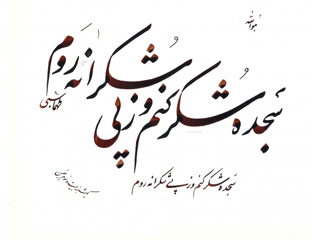 هوالله
سجده شکر کنم وز پی شکرانه روم
سجده شکر کنم وز پی شکرانه روم